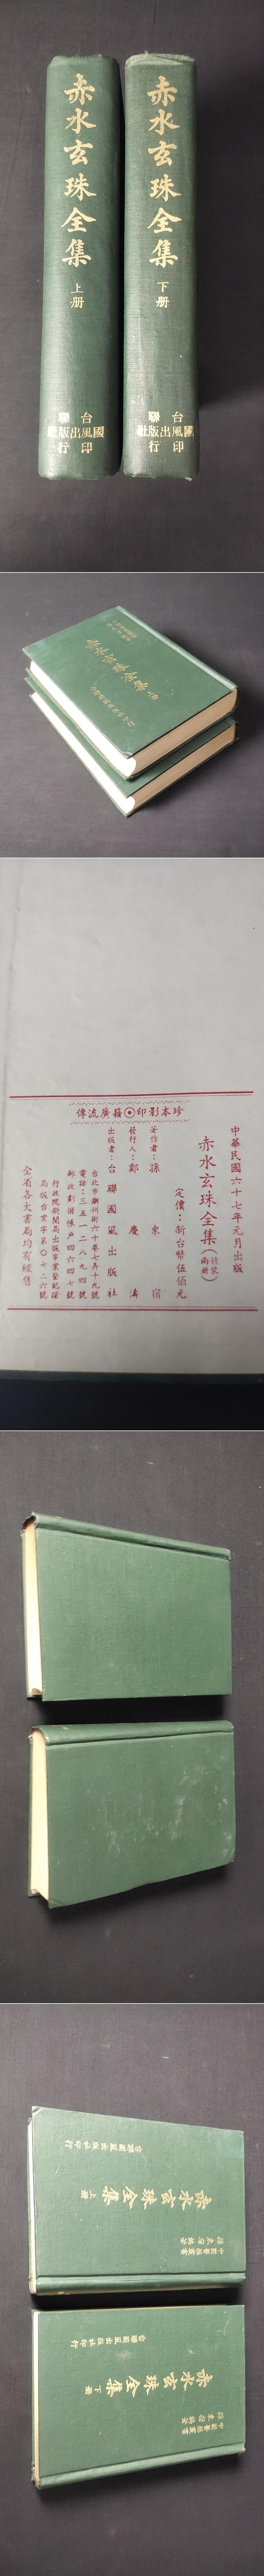 赤水玄珠全集
上册
台聯
國風出版社
印行
赤水玄珠全集
下册
台聯
國風出版社
印行
珍本影印⊙籍廣流傳
中華民國六十七年元月出版
赤水玄珠全集(精裝兩册)
定價:新台幣伍佰元
著作者:孫東宿
發行人:鄭慶濤
出版者:台聯國風出版社
台北市潮州街六十巷七弄十九號
電話:三五一二八九四號
郵政劃撥帳戶四六四七號
行政院新聞局出版事業登記證
局版台業字第〇七二六號
全省各大書局均有經售
赤水玄珠全集上册
台聯國風出版社印行
赤水玄珠全集下册
台聯國風出版社印行